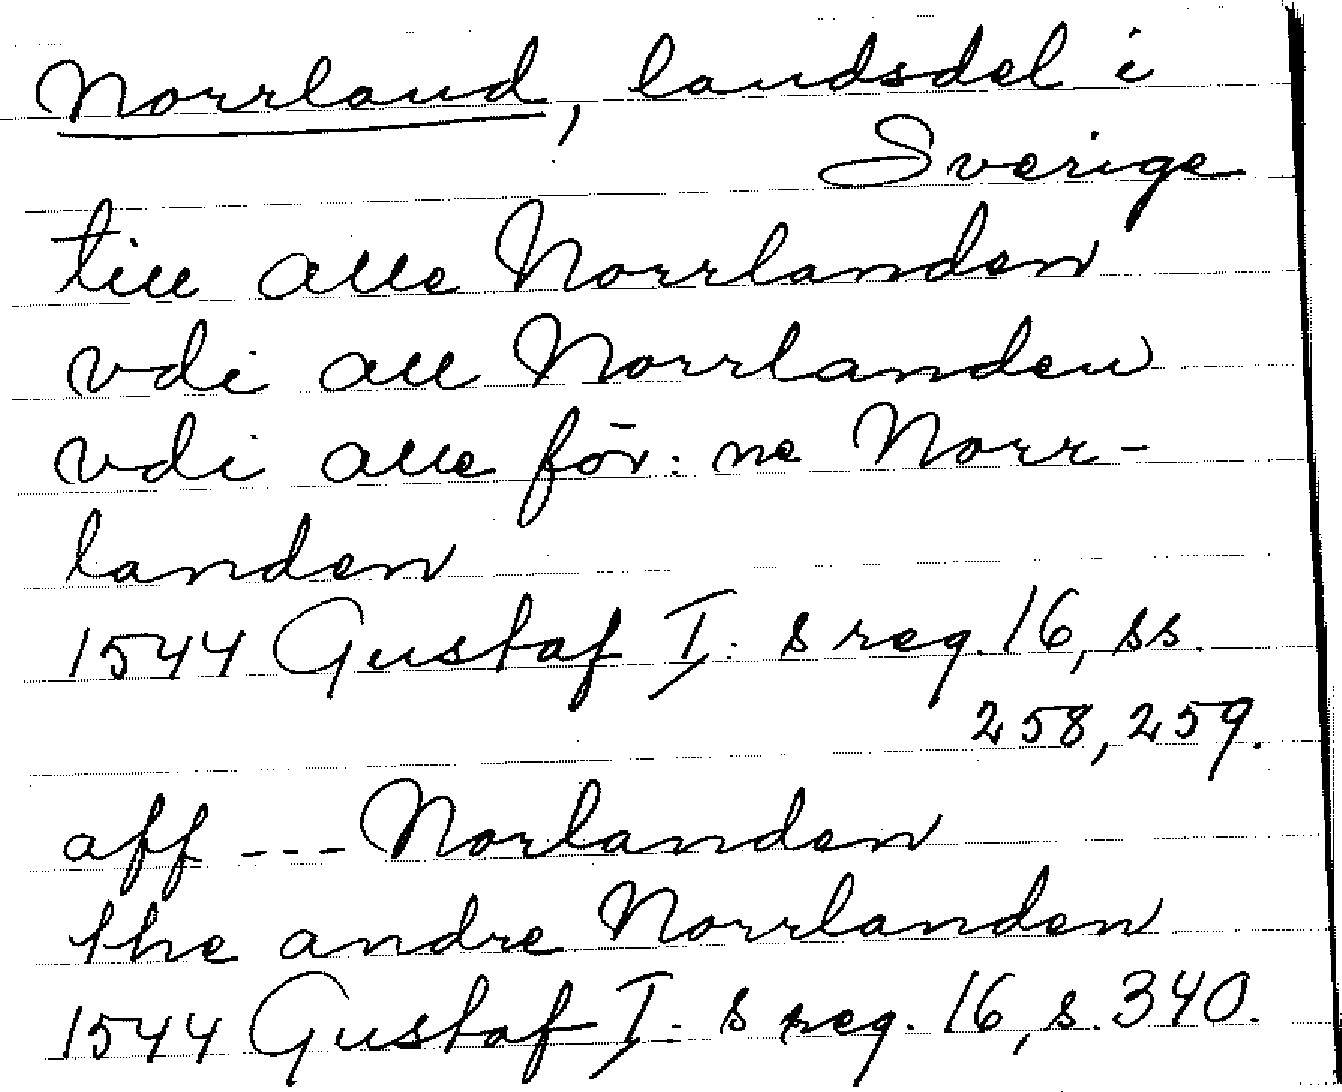 Norrland, landsdel i
Sverige
till alle Norrlanden
vdi all Norrlanden
vdi alle för: ne Norr-
landen
1544 Gustaf I: s reg. 16, ss.
258, 259.
aff --- Norlanden
the andre Norrlanden
1544 Gustaf I: s reg. 16, s. 340.